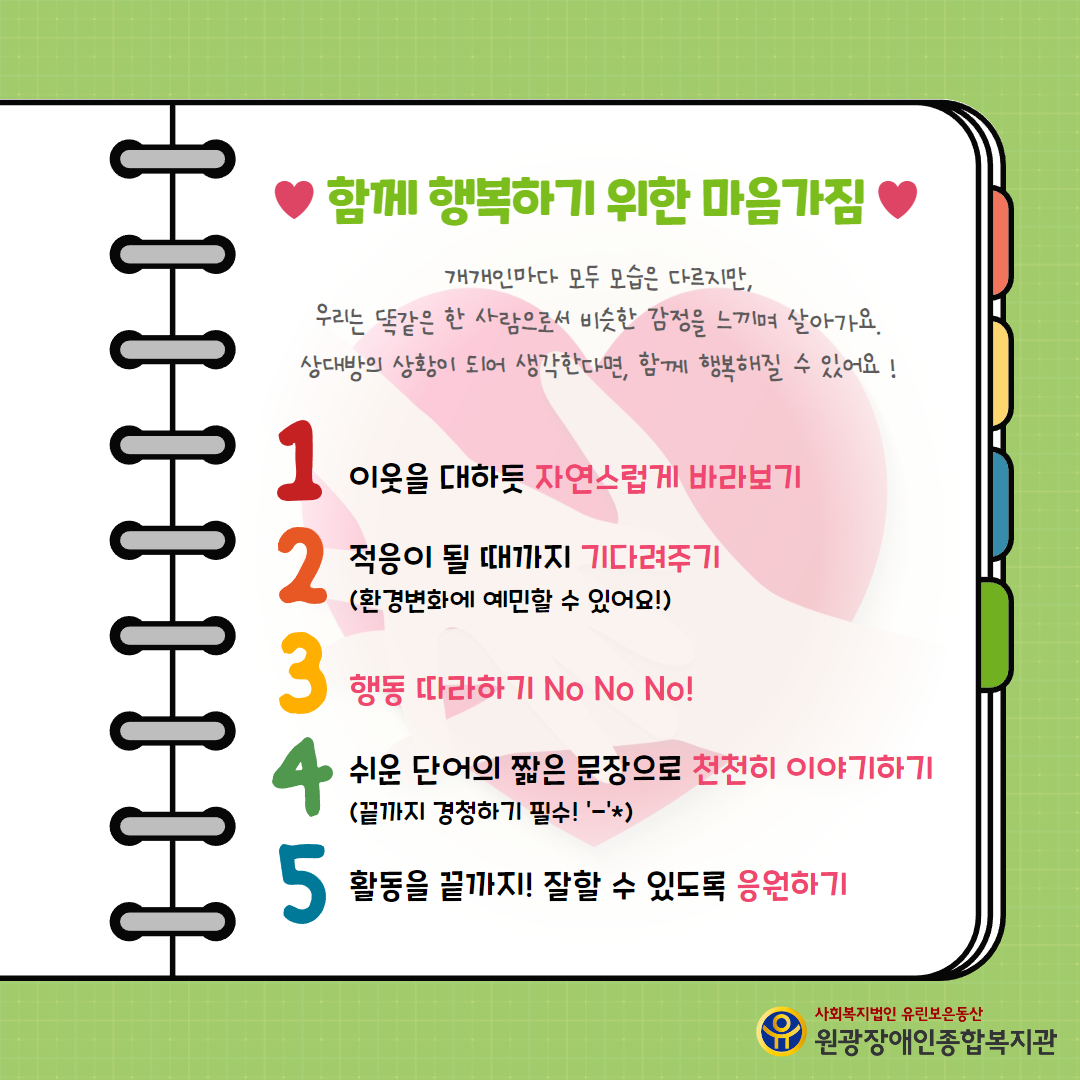 함께 행복하기 위한 마음가짐
개개인마다 모두 모습은 다르지만,
우리는 똑같은 한 사람으로서 비슷한 감정을 느끼며 살아가요.
상대방의 상황이 되어 생각한다면, 함께 행복해질 수 있어요 !
1 이웃을 대하듯 자연스럽게 바라보기
2 적응이 될 때까지 기다려주기
(환경변화에 예민할 수 있어요!)
3 행동 따라하기 No No No!
4 쉬운 단어의 짧은 문장으로 천천히 이야기하기
(끝까지 경청하기 필수! '-'*)
5 활동을 끝까지! 잘할 수 있도록 응원하기
사회복지법인 유린보은동산
원광장애인종합복지관